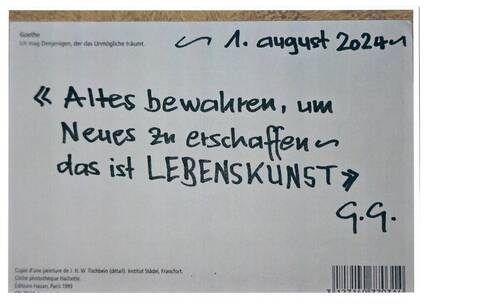 Goethe
Ich mag Denjenigen, der das Unmögliche träumt.
~ 1. august 2024 ~
« Altes bewahren, um
Neues zu erschaffen ~
das ist LEBENSKUNST »
G.G.
Copie d'une peinture de J. H. W. Tischbein (détail). Institut Städel, Francfort.
Cliché photothèque Hachette
Éditions Hazan, Paris 1999